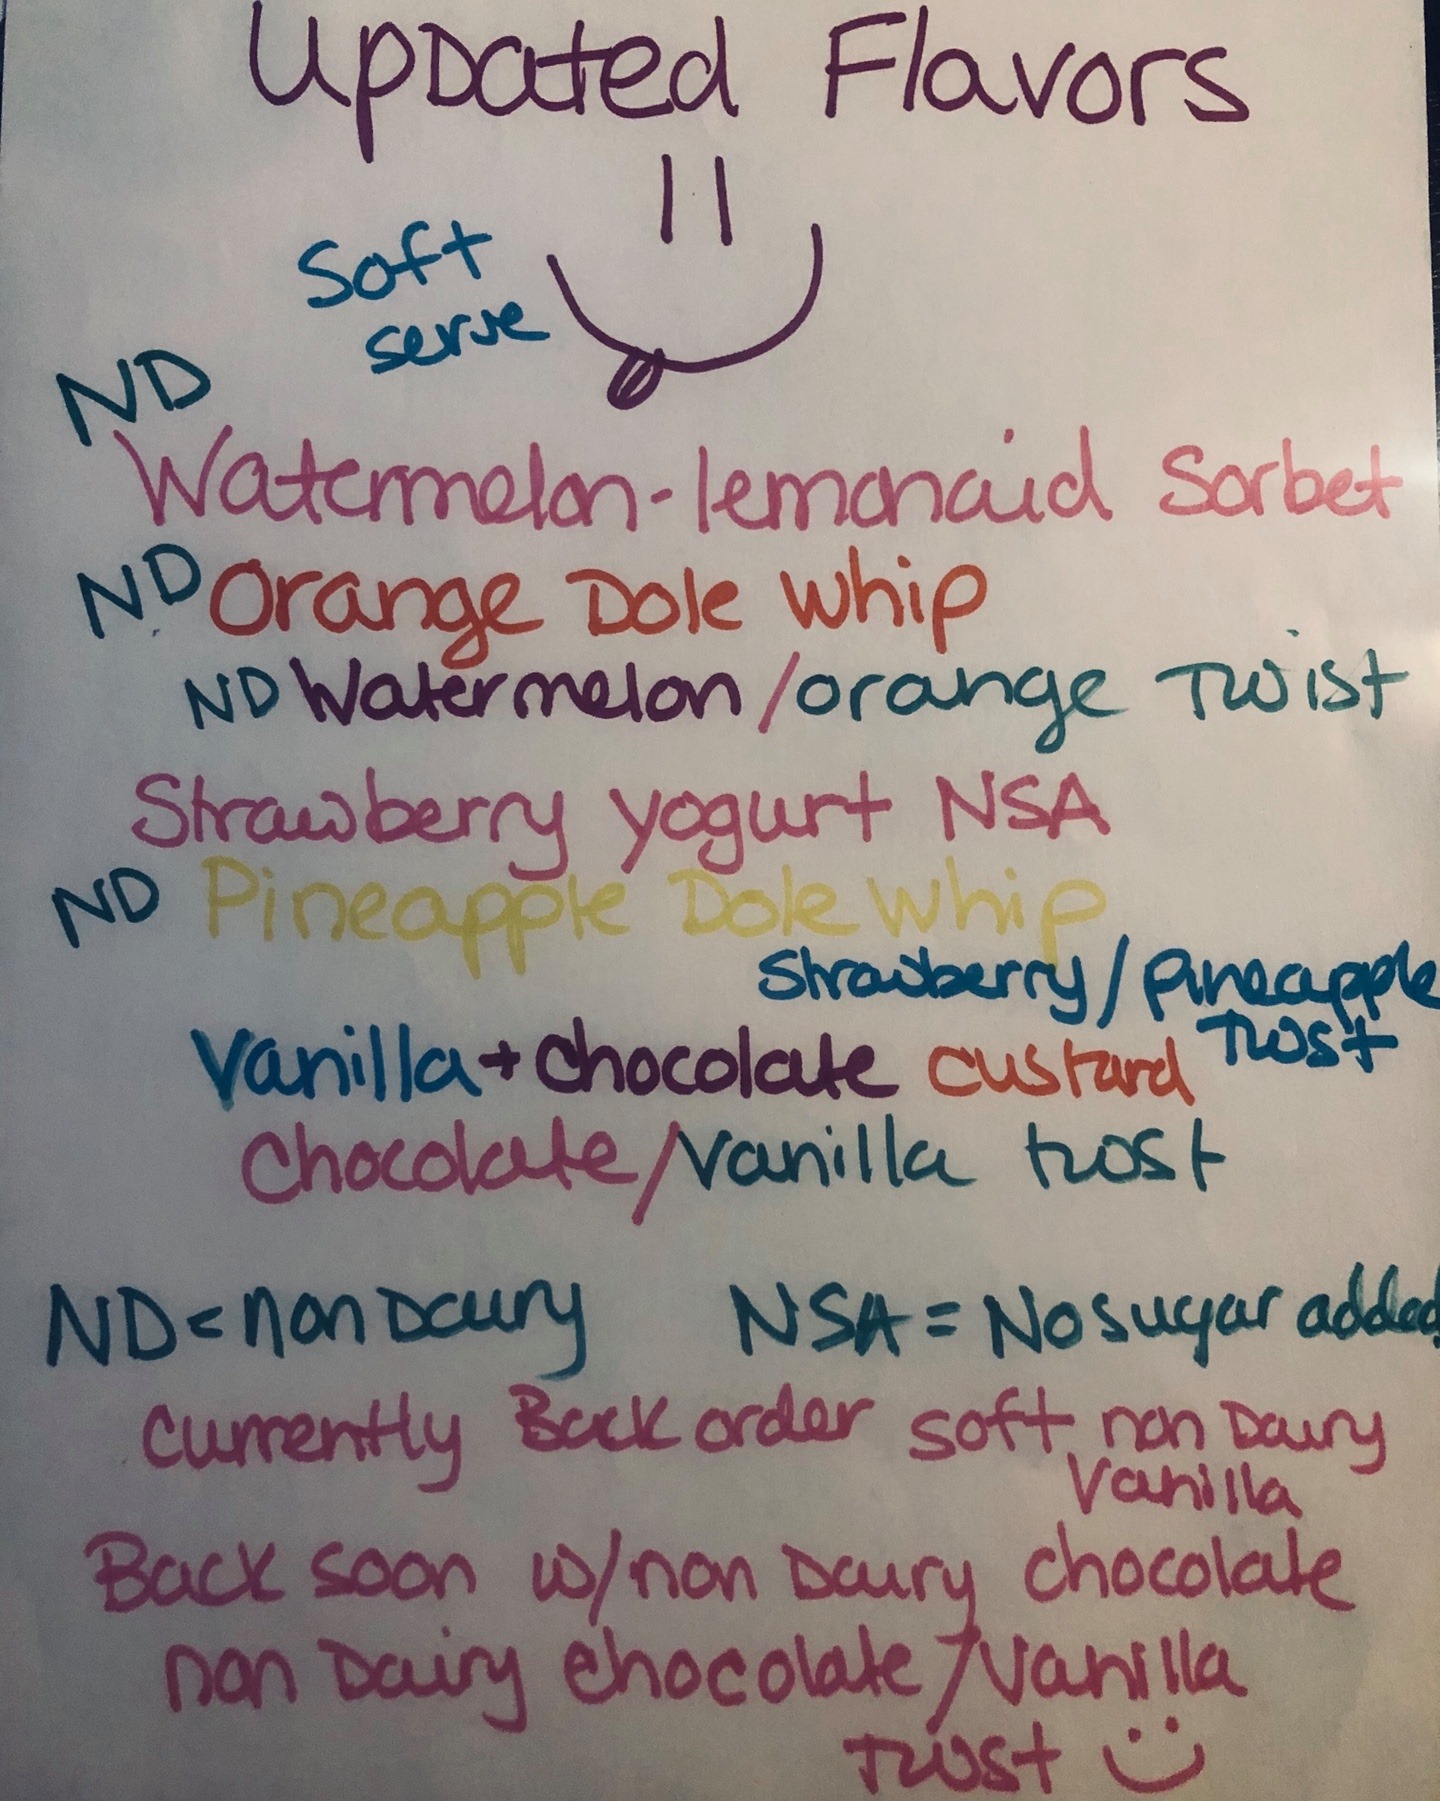 Updated Flavors
Soft
serve
ND
Watermelon-lemonaid Sorbet
ND Orange Dole Whip
ND Watermelon/orange Twist
Strawberry yogurt NSA
ND Pineapple Dole Whip
Strawberry/Pineapple
Twist
Vanilla + chocolate custard
Chocolate/Vanilla twist
ND = non Dairy NSA = No sugar added
Currently Back order soft non Dairy
Vanilla
Back soon w/non Dairy chocolate
non Dairy chocolate/Vanilla
Twist